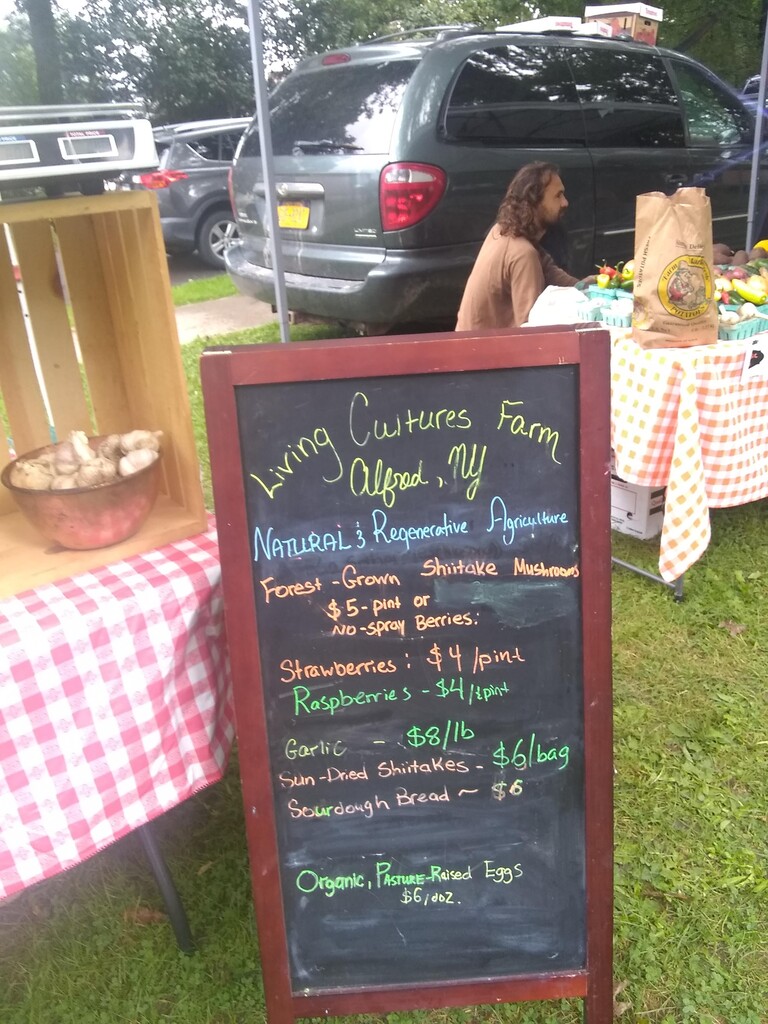 Living Cultures Farm
Alfred, NY
Natural & Regenerative Agriculture
Forest-Grown Shiitake Mushrooms
$5-pint or
No-spray Berries:
Strawberries: $4/pint
Raspberries - $4/½pint
Garlic - $8/lb
Sun-Dried Shiitakes - $6/bag
Sourdough Bread ~ $6
Organic, Pasture-Raised Eggs
$6/doz.